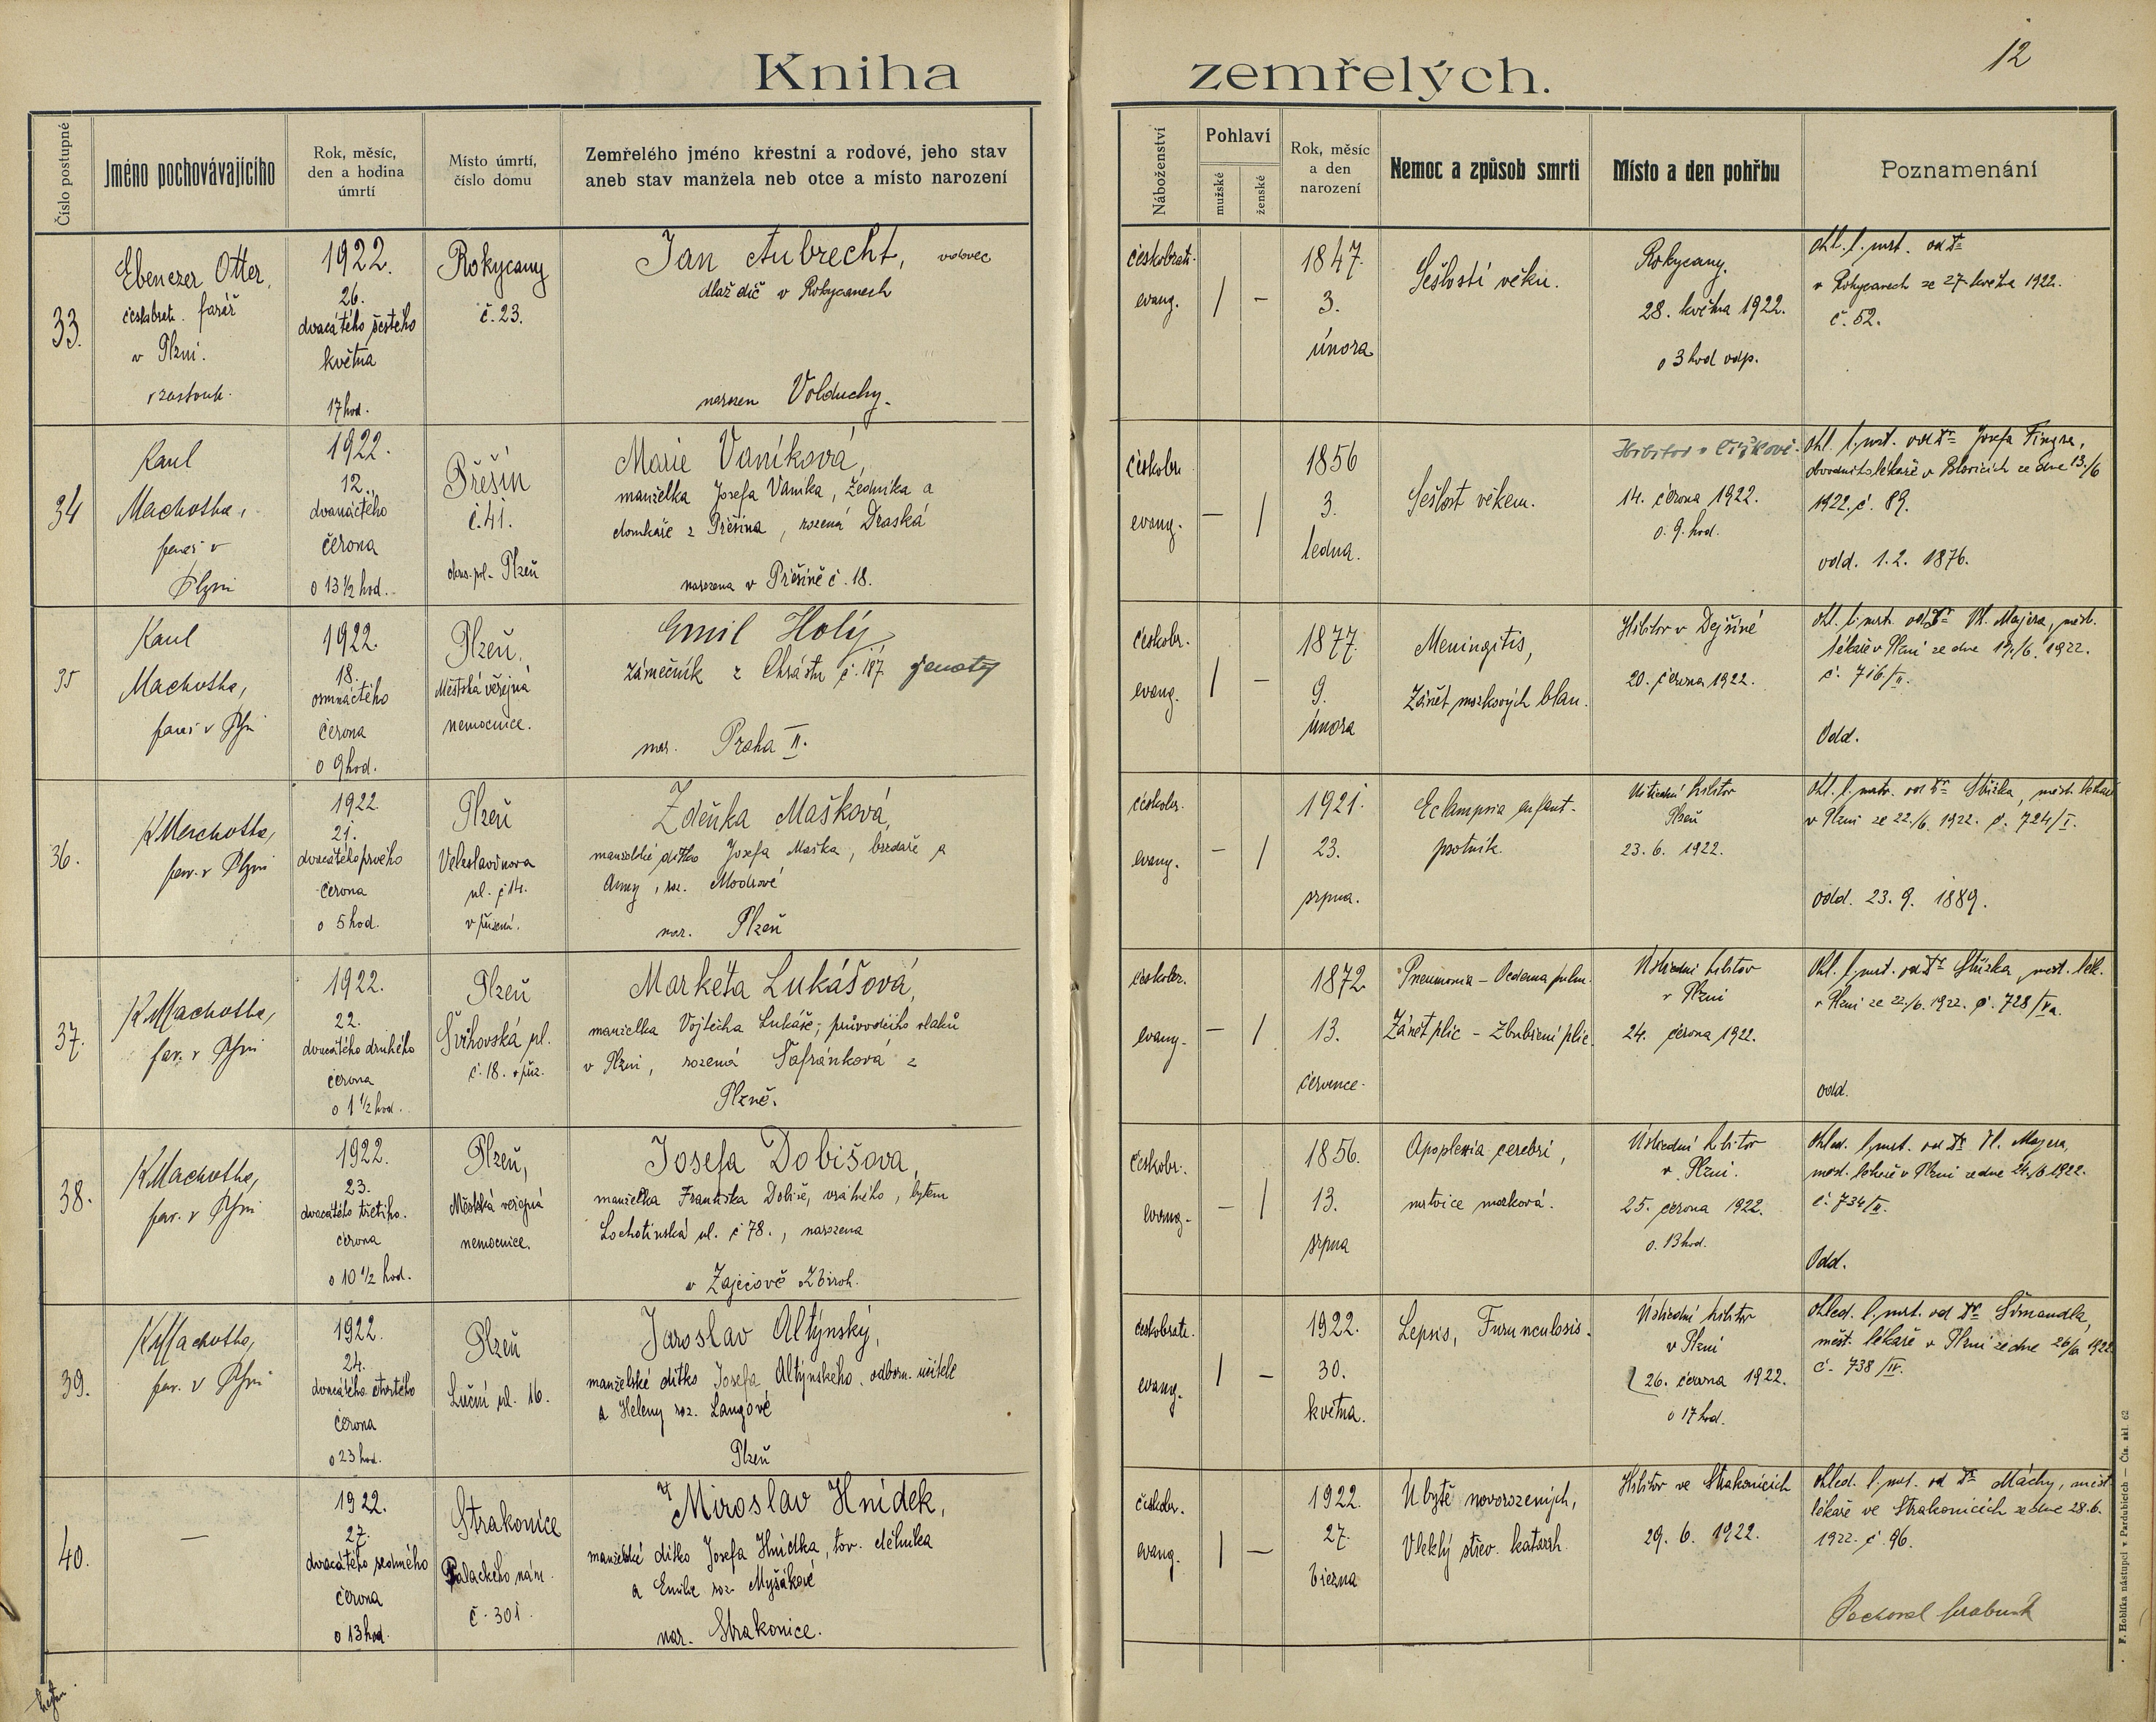 12
Kniha zemřelých.
Číslo postupné
Jméno pochovávajícího
Rok, měsíc,
den a hodina
úmrtí
Místo úmrtí,
číslo domu
Zemřelého jméno křestní a rodové, jeho stav
aneb stav manžela neb otce a místo narození
Náboženství
Pohlaví
mužské
ženské
Rok, měsíc
a den
narození
Nemoc a způsob smrti
Místo a den pohřbu
Poznamenání
33.
Ebenezer Otter,
farář
v Plzni.
1922.
26.
dvacátého šestého
května
17 hod.
Rokycany
č. 23.
Jan Aubrecht, vdovec
dlaždič v Rokycanech
narozen Volduchy.
českobratr.
evang.
/ –
1847.
3.
února
Sešlostí věku.
Rokycany.
28. května 1922.
o 3 hod odp.
ohl. l. mrt. od Dra
v Rokycanech ze 27. května 1922.
č. 52.
34
Karel
Machotka,
farář v
Plzni
1922.
12.
dvanáctého
června
o 13 1/2 hod.
Přešín
č. 41.
okres. pol. Plzeň
Marie Vaníková,
manželka Josefa Vaníka, zedníka a
domkáře z Přešína, rozená Draská
narozena v Přešíně č. 18.
českobr.
evang.
– /
1856
3.
ledna.
Sešlost věkem.
Hřbitov v Čížkově.
14. června 1922.
o 9. hod.
ohl. l. mrt. od Dra Josefa Fingra,
obvodního lékaře v Blovicích ze dne 13./6
1922. č. 89.
odd. 1.2. 1876.
35
Karel
Machotka,
farář v Plzni
1922.
18.
osmnáctého
června
o 9 hod.
Plzeň,
Městská veřejná
nemocnice.
Emil Holý
zámečník z Chrástu č. 187 ženatý
nar. Praha II.
českobr.
evang.
/ –
1877.
9.
února
Meningitis,
Zánět mozkových blan.
Hřbitov v Dejšině
20. června 1922.
ohl. l. mrt. od Dra Vl. Majera, měst.
lékaře v Plzni ze dne 19./6. 1922.
č. 716/II.
Odd.
36.
K Machotka,
far. v Plzni
1922
21.
dvacátého prvého
června
o 5 hod.
Plzeň
Veleslavínova
ul. č 14.
v přízemí.
Zdeňka Mašková,
manželské dítko Josefa Maška, brzdaře a
Anny, roz. Modrové
nar. Plzeň
českobr.
evang.
– /
1921.
23.
srpna.
Eclampsia infant.
psotník.
Ústřední hřbitov
Plzeň
23. 6. 1922.
ohl. l. mrtv. od Dra Stűzka, měst. lékaře
v Plzni ze 22./6. 1922. č. 724/I.
odd. 23. 9. 1889.
37.
K Machotka,
far. v Plzni
1922.
22.
dvacátého druhého
června
o 1 1/2 hod.
Plzeň
Švihovská ul.
č. 18. v příz.
Markéta Lukášová,
manželka Vojtěcha Lukáše, průvodčího vlaků
v Plzni, rozená Šafránková z
Plzně.
českobr.
evang.
– /
1872
13.
července.
Pneumonia – Oedema pulm.
Zánět plic – Zbubření plic.
Ústřední hřbitov
v Plzni
24. června 1922.
Ohl. l. mrt. od Dra Stűzka, měst. lék.
v Plzni ze 22./6. 1922. č. 728/Va.
odd.
38.
K Machotka,
far. v Plzni
1922.
23.
dvacátého třetího.
června
o 10 1/2 hod.
Plzeň,
Městská veřejná
nemocnice.
Josefa Dobišova,
manželka Františka Dobiše, vrátného, bytem
Lochotínská ul. č 78., narozena
v Zaječově Zbiroh.
českobr.
evang.
– /
1856.
13.
srpna
Apoplexia cerebri,
mrtvice mozková.
Ústřední hřbitov
v Plzni.
25. června 1922.
o. 13 hod.
ohled. l. mrt. od Dra Vl. Majera,
měst. lékaře v Plzni ze dne 24./6 1922.
č. 734/II.
Odd.
39.
K Machotka,
far. v Plzni
1922.
24.
dvacátého čtvrtého
června
o 23 hod.
Plzeň
Luční ul. 16.
Jaroslav Altýnský,
manželské dítko Josefa Altýnského, odborn. učitele
a Heleny roz. Langové
Plzeň
českobratr.
evang.
/ –
1922.
30.
května.
Sepsis, Furunculosis.
Ústřední hřbitov
v Plzni
26. června 1922.
o 17 hod.
ohled. l. mrt. od Dra Šimandla,
měst. lékaře v Plzni ze dne 26/6. 1922
č. 738/IV.
40.
—
1922.
27.
dvacátého sedmého
června
o 13 hod.
Strakonice
Palackého nám.
č. 301.
Miroslav Hnídek,
manželské dítko Josefa Hnídka, tov. dělníka
a Emilie roz. Myšákové
nar. Strakonice.
českobr.
evang.
/ —
1922.
27.
března
Úbytě novorozených,
Vleklý střev. katarrh.
Hřbitov ve Strakonicích
29. 6. 1922.
ohled. l. mrt. od Dra Máchy, měst
lékaře ve Strakonicích ze dne 28.6.
1922. č. 96.
Pochoval
F. Hoblíka nástupci v Pardubicích — Čís. skl. 62